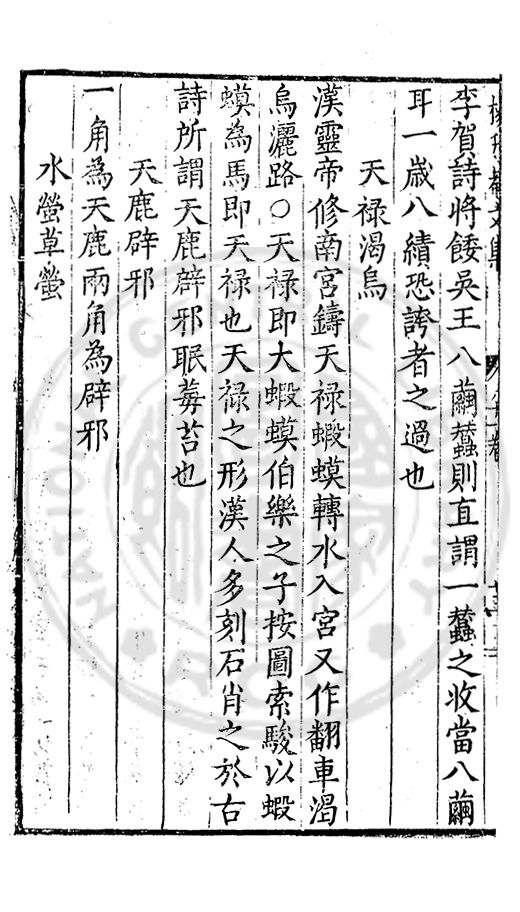 李賀詩將餧吳王八繭蠶則直謂一蠶之收當八繭
耳一歲八績恐誇者之過也
天祿渴烏
漢靈帝修南宮鑄天祿蝦蟆轉水入宮又作翻車渴
烏灑路○天祿即大蝦蟆伯樂之子按圖索駿以蝦
蟆為馬即天祿也天祿之形漢人多刻石肖之於古
詩所謂天鹿辟邪眠莓苔也
天鹿辟邪
一角為天鹿兩角為辟邪
水螢草螢